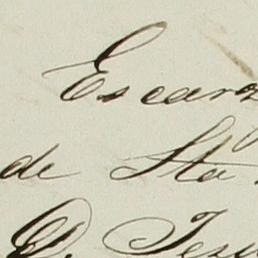 Escarz
de Sta.
D. Jesu